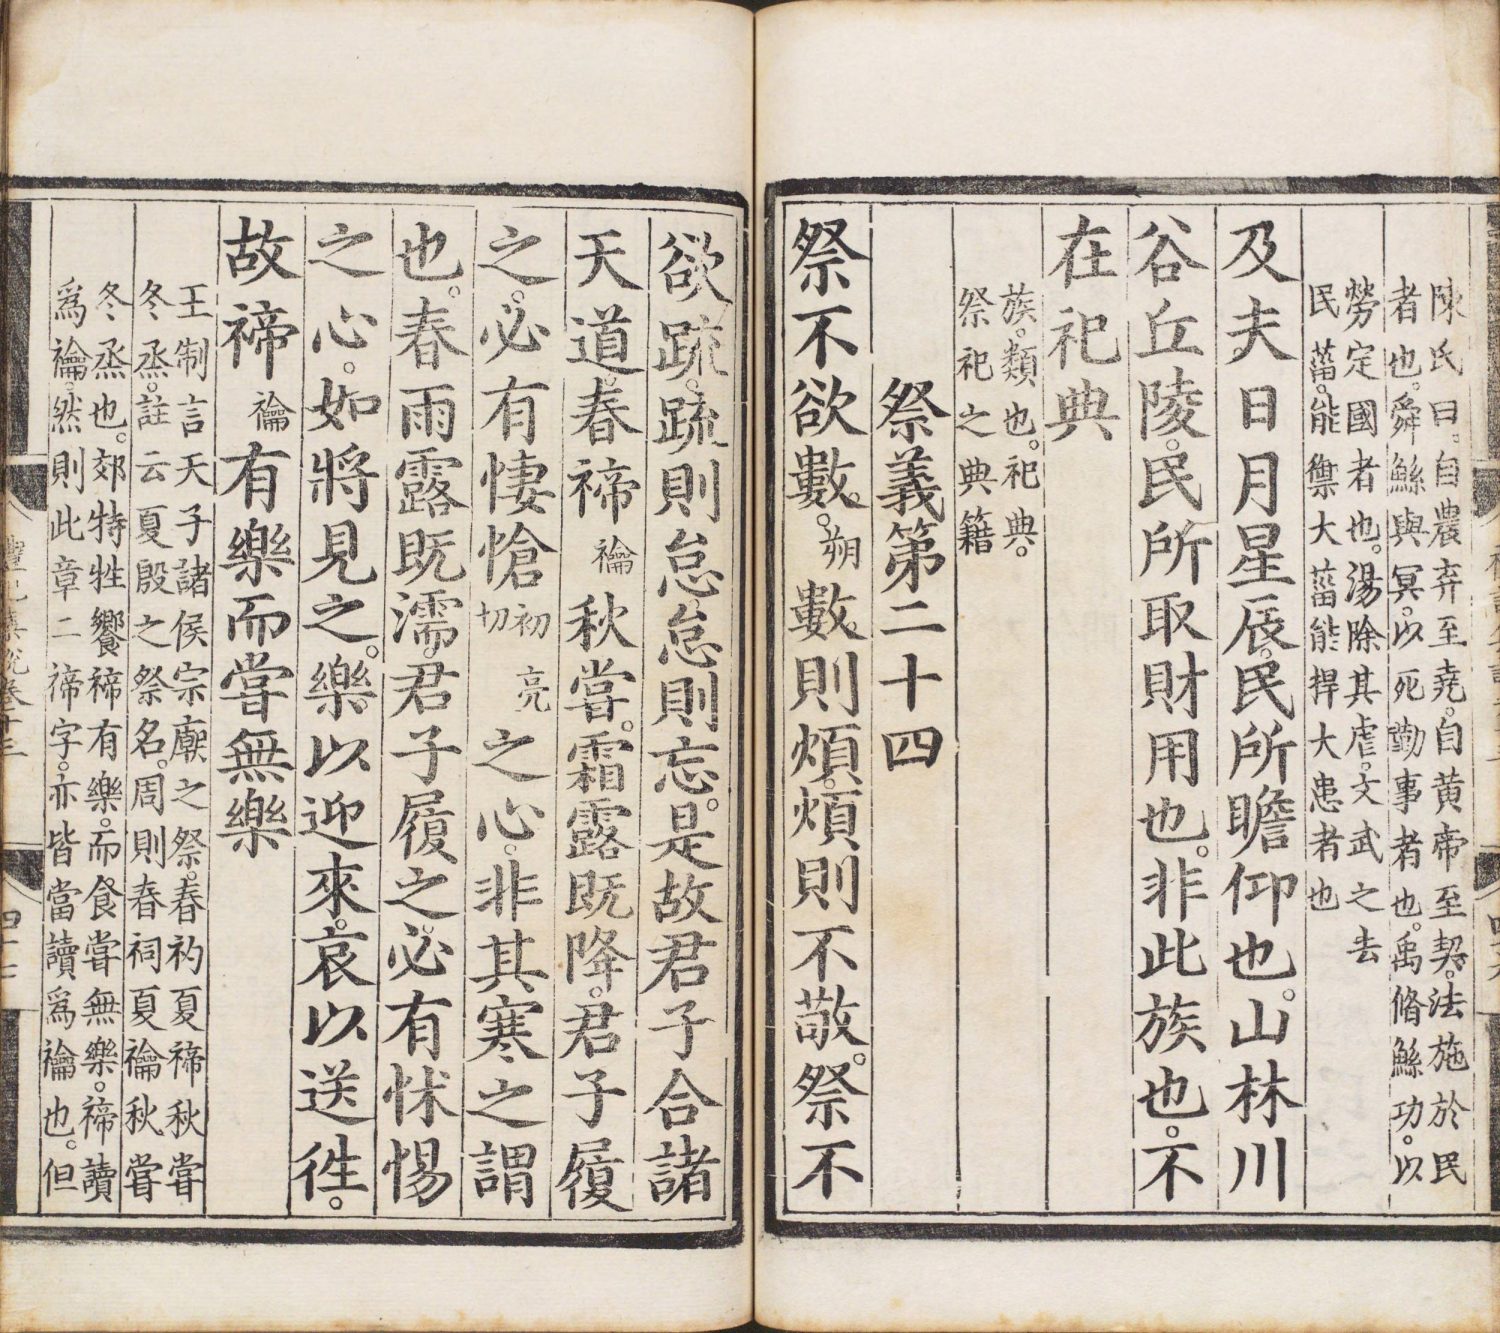 陳氏曰。自農弃至堯。自黄帝至契。法施於民
者也。舜鯀與冥。以死勤事者也。禹脩鯀功。以
勞定國者也。湯除其虐。文武之去
民菑。能禦大菑能捍大患者也
及夫日月星辰。民所瞻仰也。山林川
谷丘陵。民所取財用也。非此族也。不
在祀典
族。類也。祀典。
祭祀之典籍
祭義第二十四
祭不欲數。朔數。則煩。煩則不敬。祭不
欲疏。疏則怠怠則忘。是故君子合諸
天道。春禘禴秋嘗。霜露既降。君子履
之。必有悽愴初亮切之心。非其寒之謂
也。春雨露既濡。君子履之。必有怵惕
之心。如將見之。樂以迎來。哀以送徃。
故禘禴有樂而嘗無樂
王制言天子諸侯宗廟之祭。春礿夏禘秋嘗
冬烝。註云夏殷之祭名。周則春祠夏禴秋嘗
冬烝也。郊特牲饗禘有樂。而食嘗無樂。禘讀
爲禴。然則此章二禘字。亦皆當讀爲禴也。但